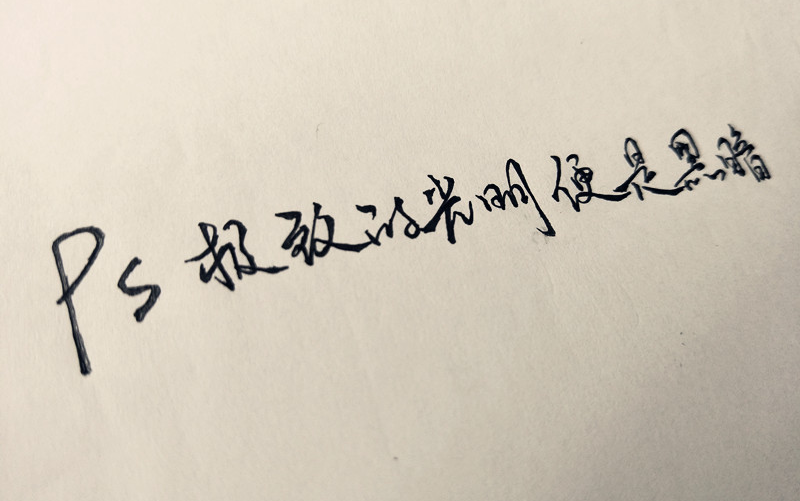 Ps 极致的光明便是黑暗